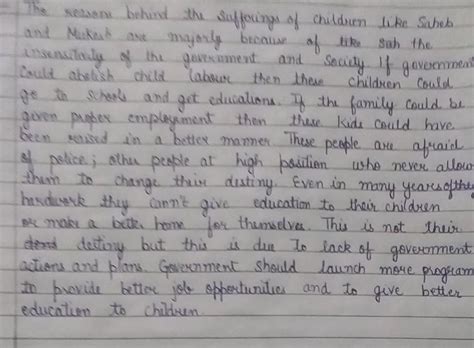 The reasons behind the sufferings of children like Saheb
and Mukesh are majorly because of like sah the
insensitivity of the government and society. If government
could abolish child labour then these children could
go to schools and get educations. If the family could be
given proper employment then these kids could have
been raised in a better manner. These people are afraid
of police; other people at high position who never allow
them to change their destiny. Even in many years of the
hardwork they cann't give education to their children
or make a better home for themselves. This is not their
destiny but this is due to lack of government
actions and plans. Government should launch more program
to provide better job opportunities and to give better
education to children.